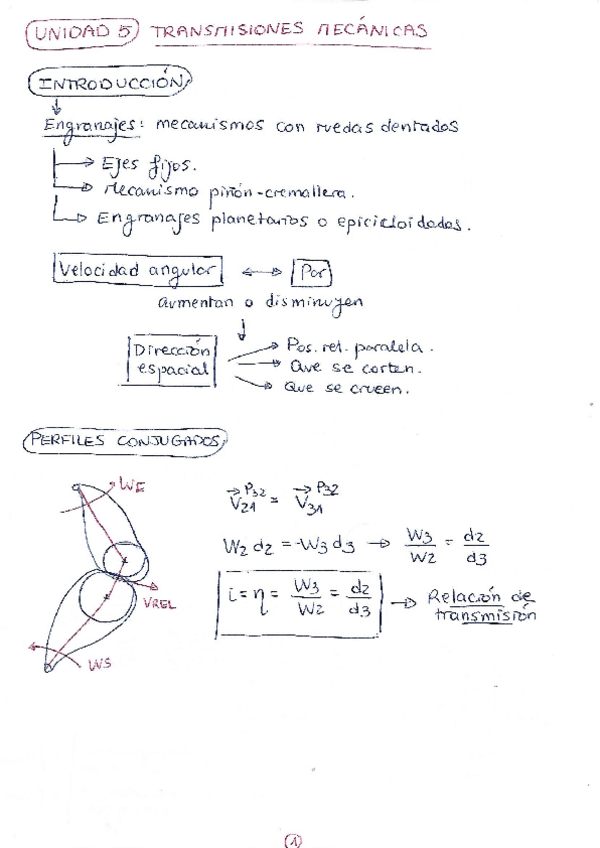 UNIDAD 5 TRANSMISIONES MECÁNICAS
INTRODUCCIÓN
Engranajes: mecanismos con ruedas dentadas
→ Ejes fijos.
→ Mecanismo piñón-cremallera.
→ Engranajes planetarios o epicicloidades.
Velocidad angular ↔ Par
aumentan o disminuyen
Dirección espacial
→ Pos. rel. paralela.
→ Que se corten.
→ Que se crucen.
PERFILES CONJUGADOS
WE
VREL
WS
V21^P32 = V31^P32
W2 d2 = -W3 d3 → W3/W2 = d2/d3
i = η = W3/W2 = d2/d3 → Relación de transmisión
1